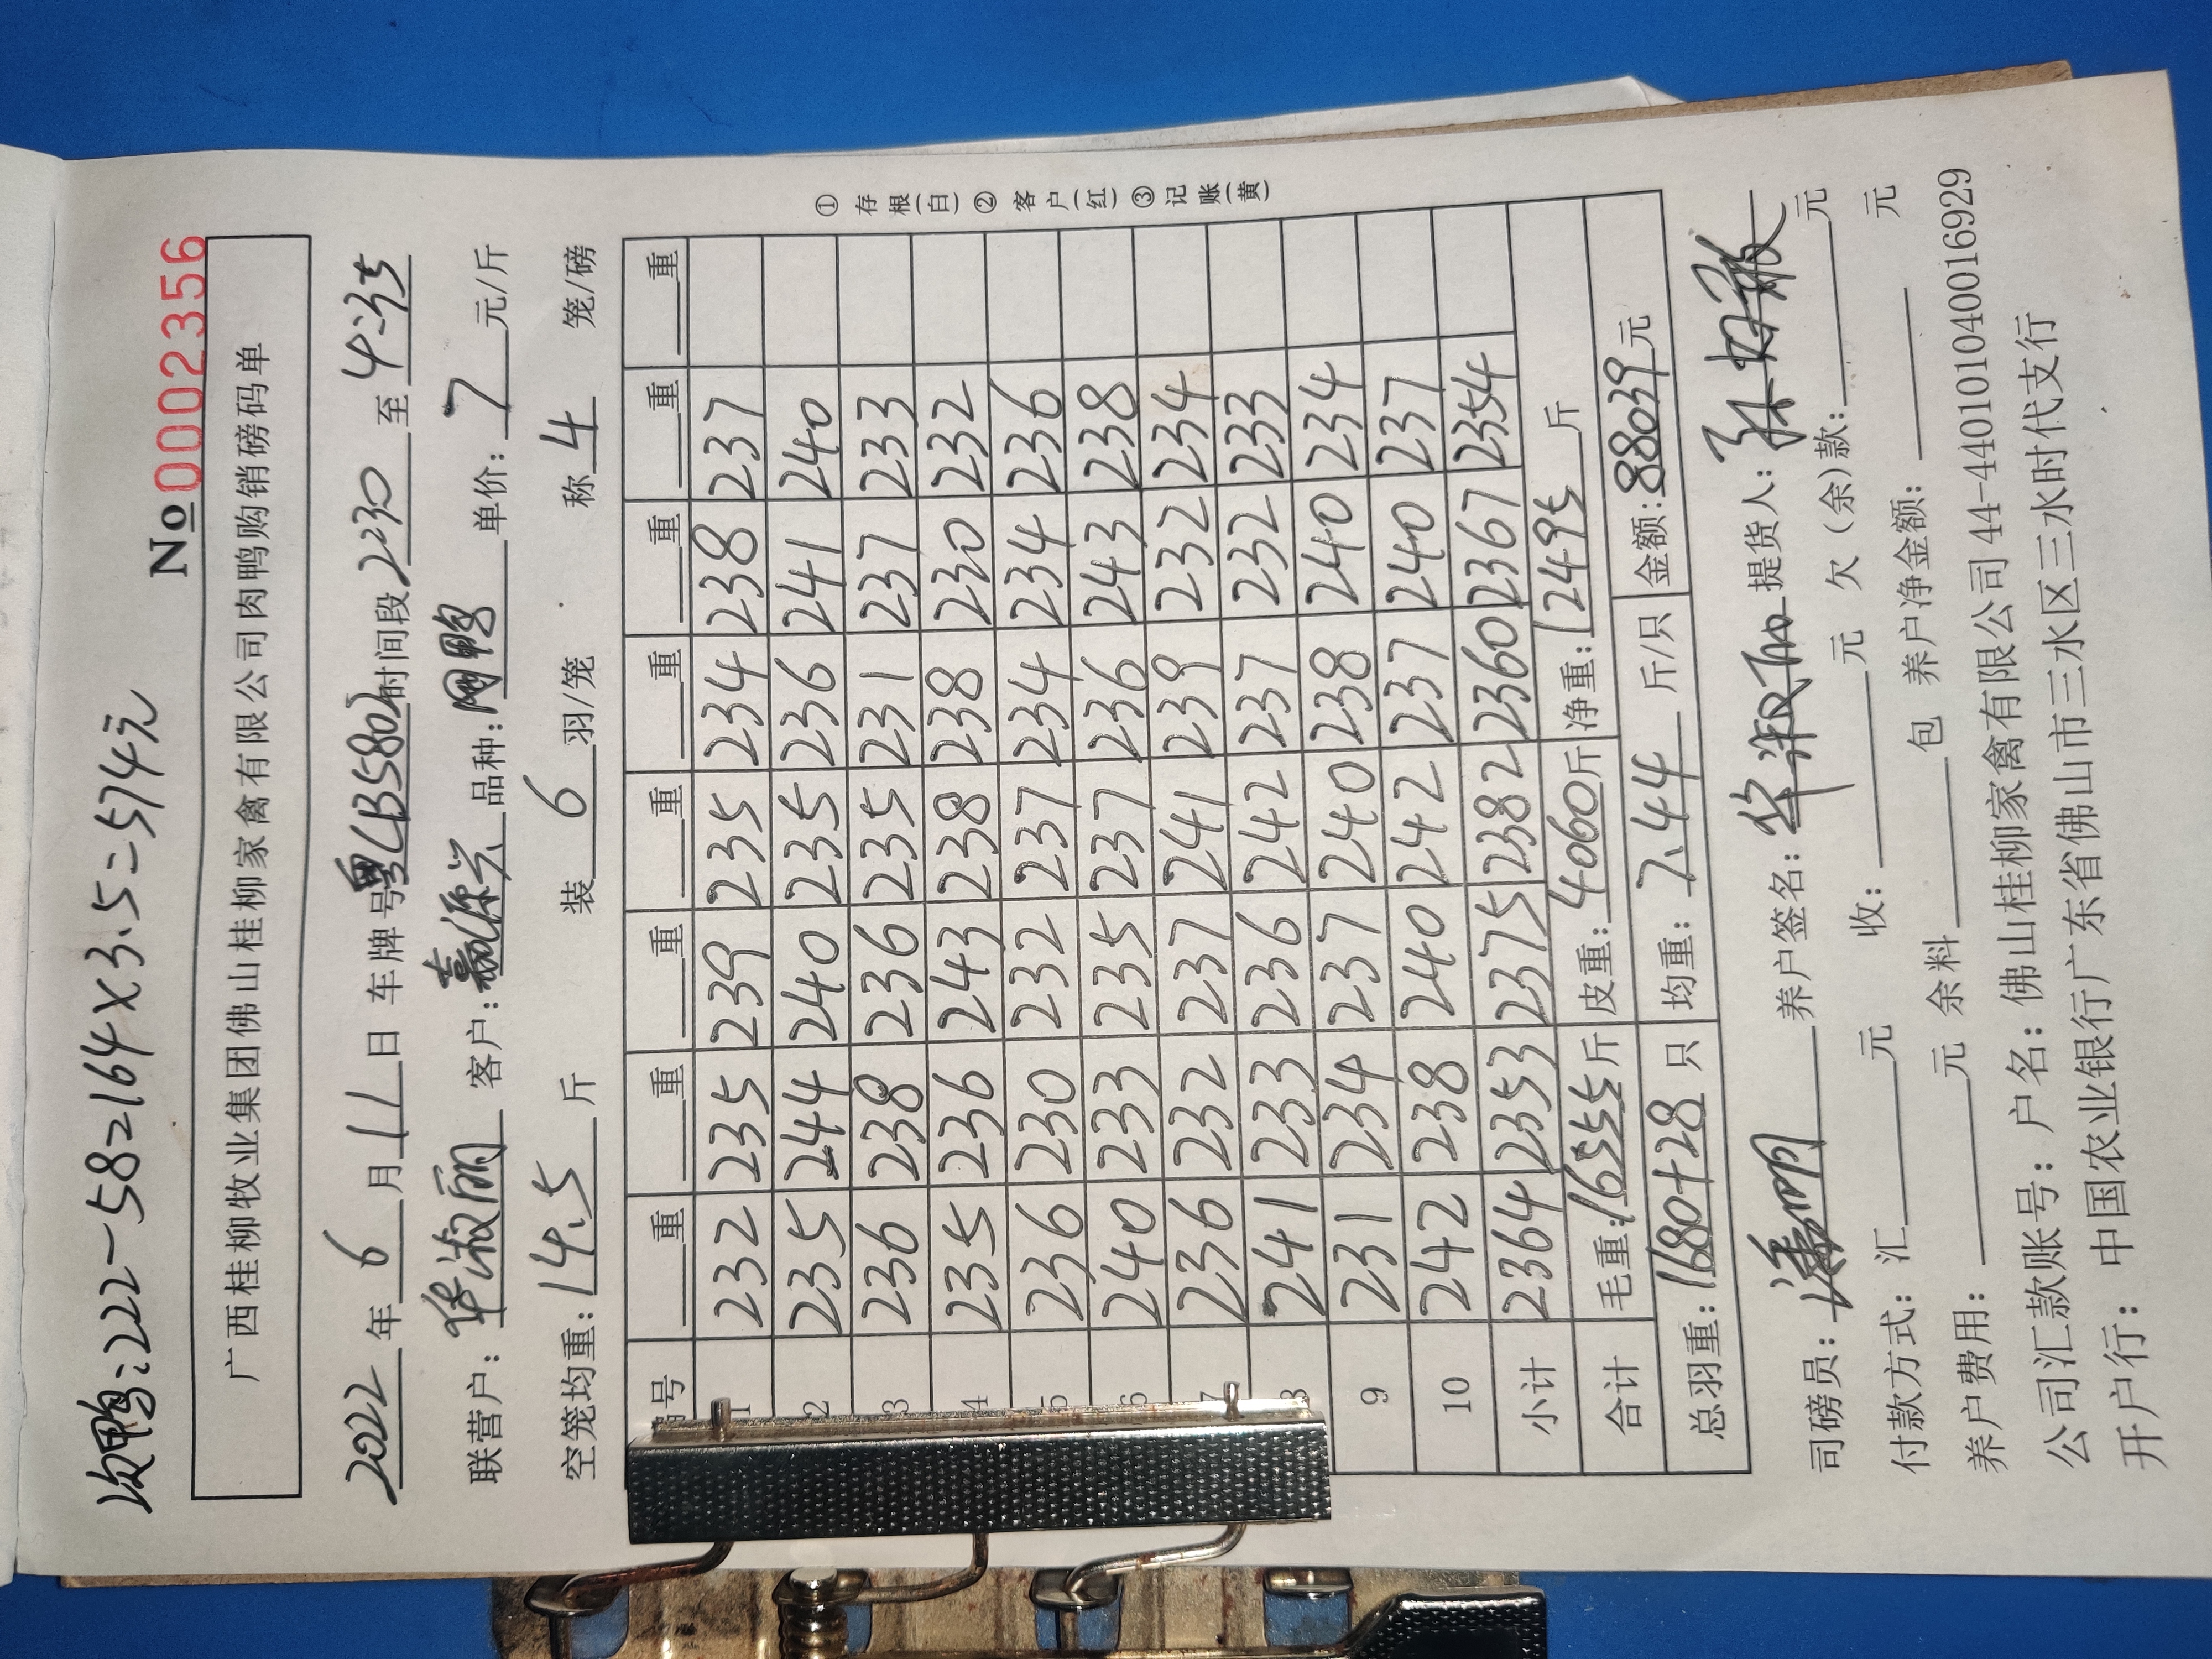 次鸭:222-58=164×3.5=574元
No 0002356
广西桂柳牧业集团佛山桂柳家禽有限公司肉鸭购销磅码单
2022年 6 月 11 日 车牌号 粤LB5802 时间段 230 至 4:35
联营户: 华淑丽 客户: 赢源兴 品种: 网鸭 单价: 7 元/斤
空笼均重: 14.5 斤 装 6 羽/笼 称 4 笼/磅
号 重 重 重 重 重 重 重 重
1 232 235 239 235 234 238 237
2 235 244 240 235 236 241 240
3 236 238 236 235 231 237 233
4 235 236 243 238 238 230 232
5 236 230 232 237 234 234 236
6 240 233 235 237 236 243 238
7 236 232 237 241 239 232 234
8 241 233 236 242 237 232 233
9 231 234 237 240 238 240 234
10 242 238 240 242 237 240 237
小计 2364 2353 2375 2382 2360 2367 2354
合计 毛重: 16555 斤 皮重: 4060 斤 净重: 12495 斤
总羽重: 1680+28 只 均重: 7.44 斤/只 金额: 88039 元
① 存根(白) ② 客户(红) ③ 记账(黄)
司磅员: 养户签名: 提货人:
付款方式: 汇 元 收: 元 欠(余)款: 元
养户费用: 元 余料 包 养户净金额: 元
公司汇款账号: 户名: 佛山桂柳家禽有限公司 44-440101040016929
开户行: 中国农业银行广东省佛山市三水区三水时代支行